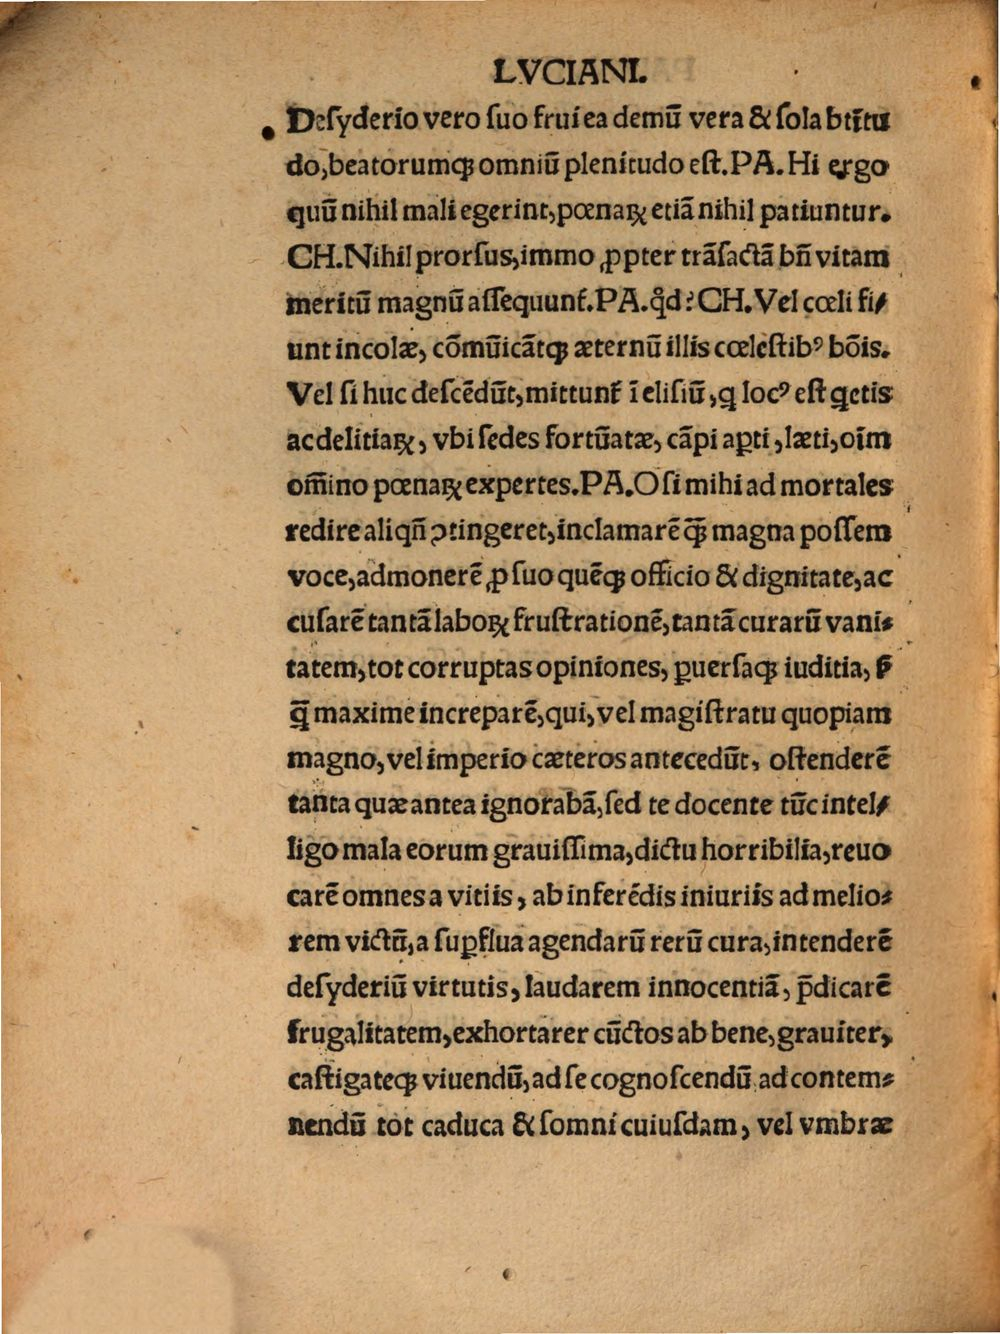 LVCIANI.
Desyderio vero suo frui ea demū vera & sola btītu
do, beatorumqꝫ omniū plenitudo est. PA. Hi ergo
quū nihil mali egerint, pœnaꝝ etiā nihil patiuntur.
CH. Nihil prorsus, immo ꝓpter trāsactā bn̄ vitam
meritū magnū assequunt̄. PA. qd̄? CH. Vel cœli fi-
unt incolæ, cōmūicātqꝫ æternū illis cœlestibꝰ bōis.
Vel si huc descēdūt, mittunt̄ ī elisiū, ꝗ locꝰ est ꝗetis
ac delitiaꝝ, vbi sedes fortūatæ, cāpi aꝑti, læti, oīm
om̄ino pœnaꝝ expertes. PA. O si mihi ad mortales
redire aliqn̄ ꝯtingeret, inclamarē q̄ꝫ magna possem
voce, admonerē ꝓ suo quēqꝫ officio & dignitate, ac
cusarē tantā laboꝝ frustrationē, tantā curarū vani-
tatem, tot corruptas opiniones, ꝑuersaqꝫ iuditia, ꝑ
q̄ maxime increparē, qui, vel magistratu quopiam
magno, vel imperio cæteros antecedūt, ostenderē
tanta quæ antea ignorabā, sed te docente tūc intel-
ligo mala eorum grauissima, dictu horribilia, reuo
carē omnes a vitiis, ab inferēdis iniuriis ad melio-
rem victū, a suꝑflua agendarū rerū cura, intenderē
desyderiū virtutis, laudarem innocentiā, p̄dicarē
frugalitatem, exhortarer cūctos ab bene, grauiter,
castigateqꝫ viuendū, ad se cognoscendū ad contem-
nendū tot caduca & somni cuiusdam, vel vmbræ